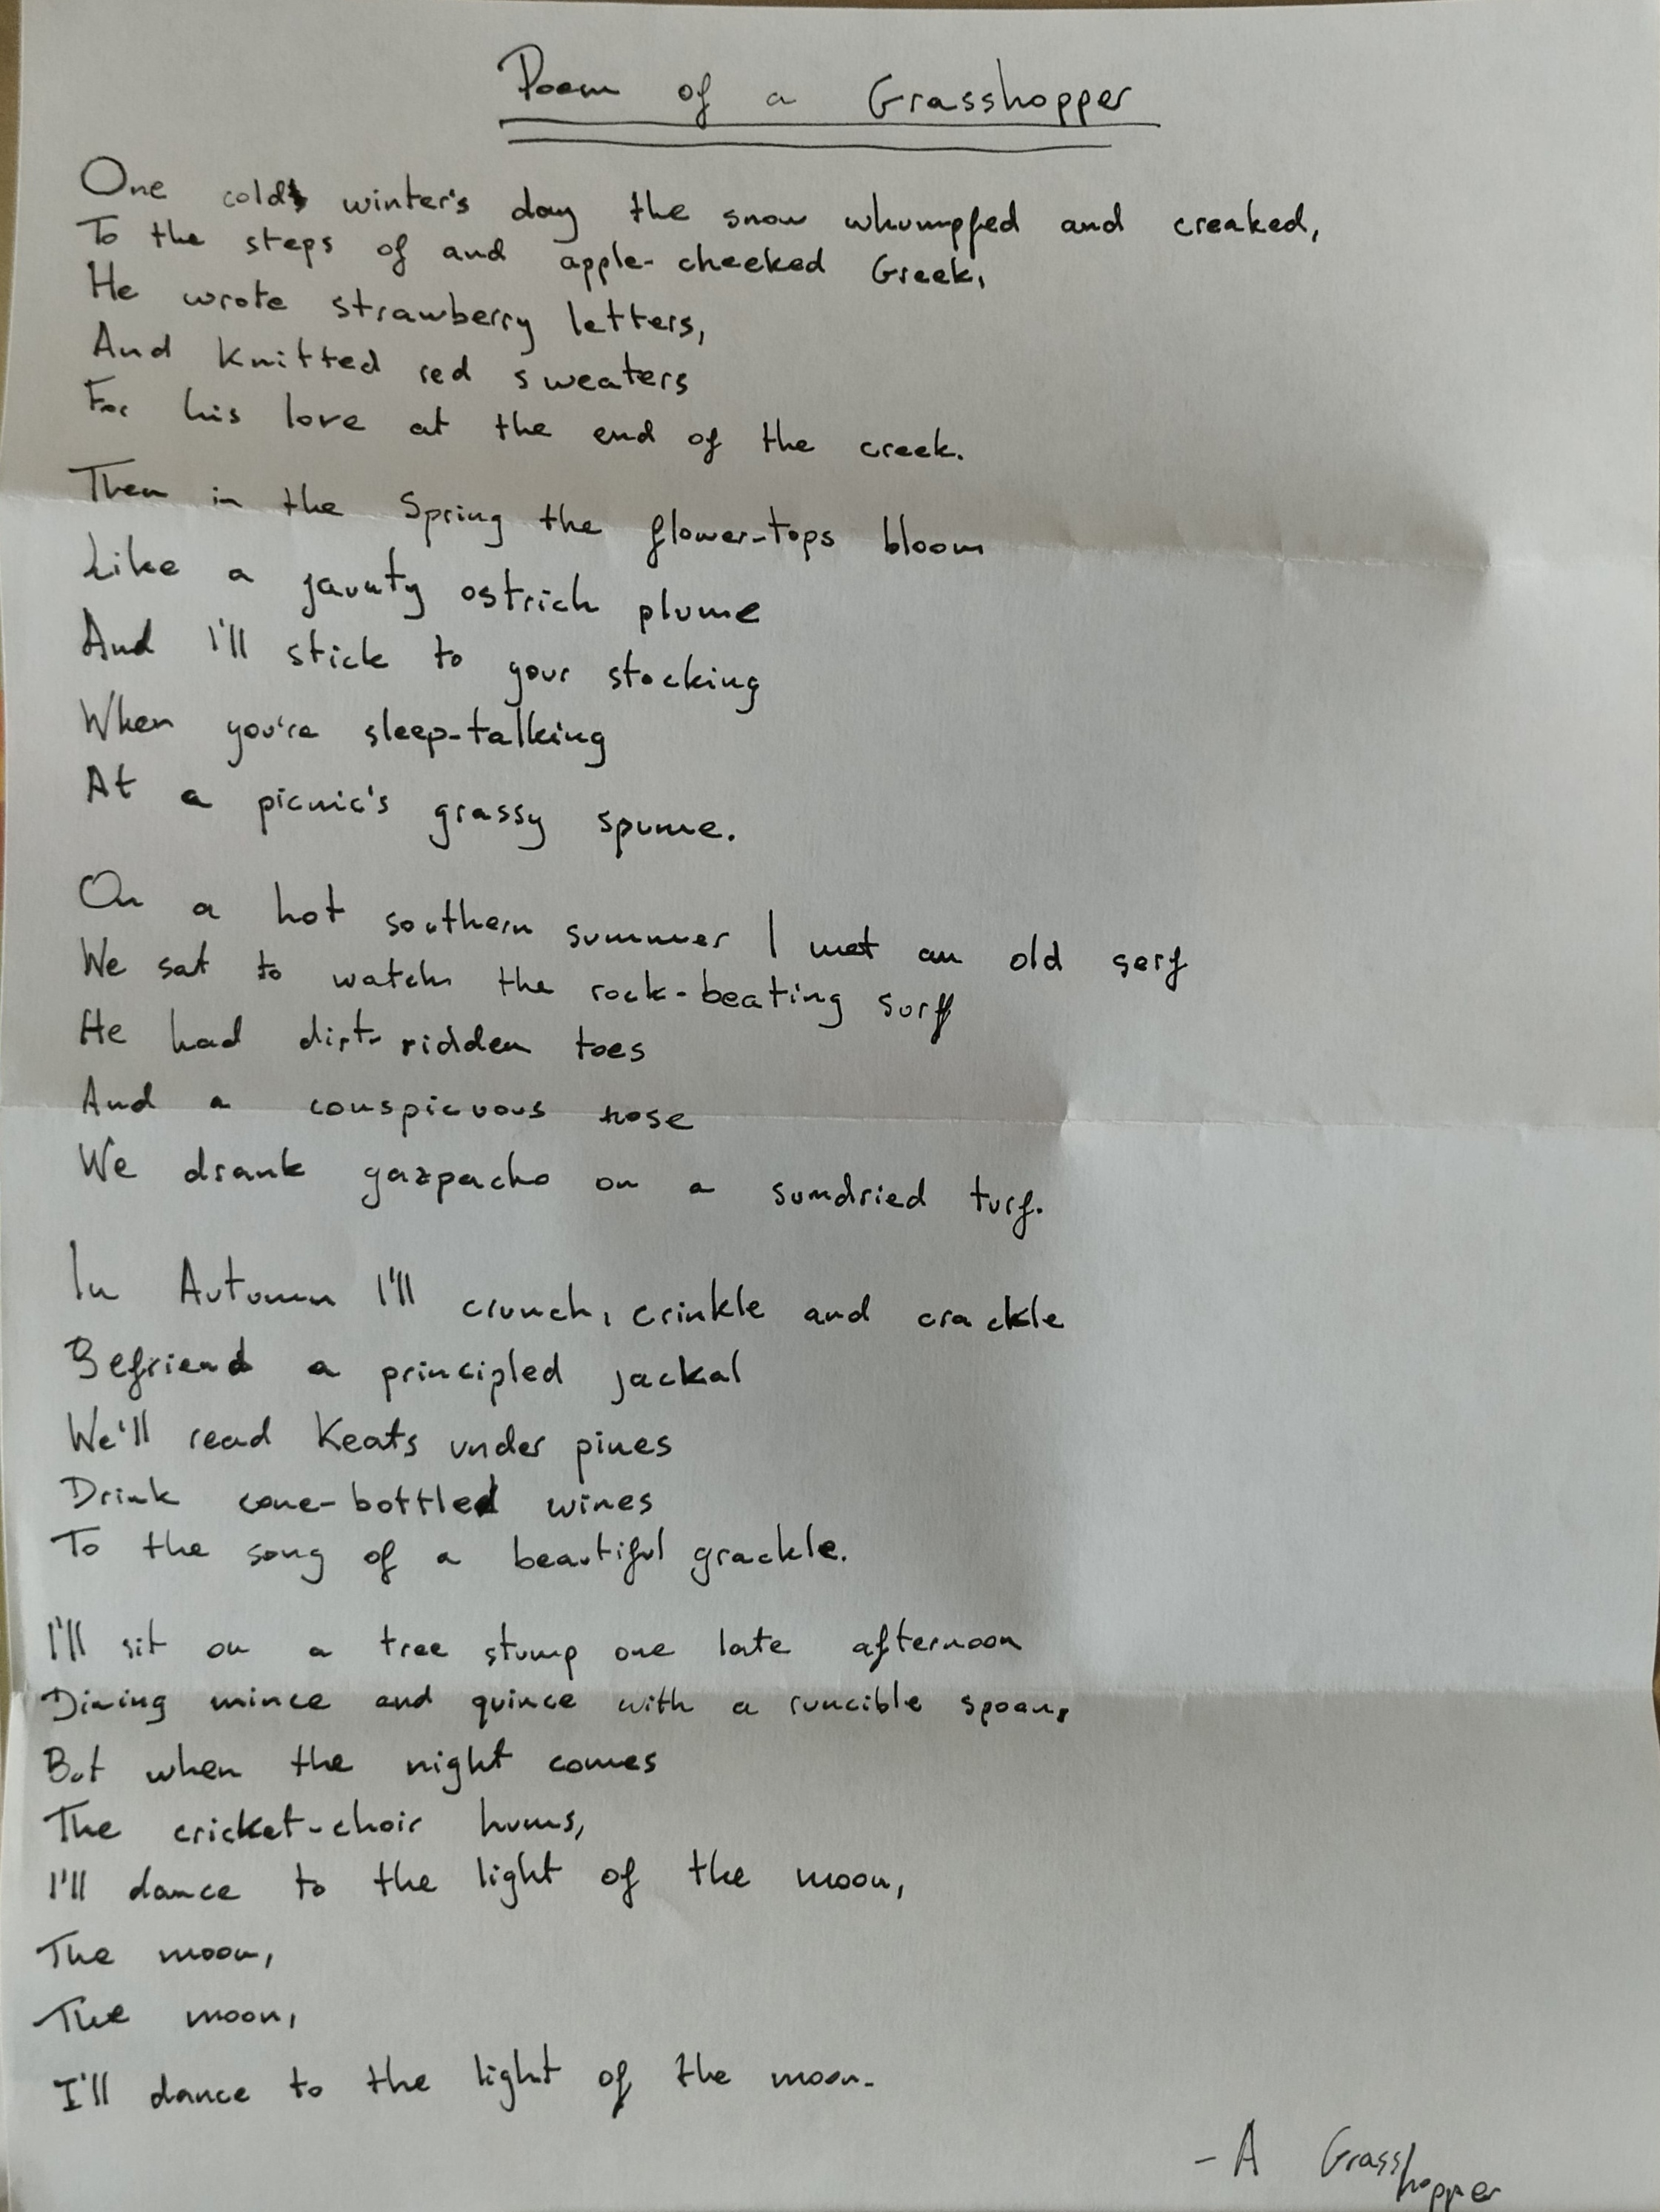 Poem of a Grasshopper
One cold winter's day the snow whumpfed and creaked,
To the steps of and apple-cheeked Greek,
He wrote strawberry letters,
And knitted red sweaters
For his love at the end of the creek.
Then in the Spring the flower-tops bloom
Like a jaunty ostrich plume
And I'll stick to your stocking
When you're sleep-talking
At a picnic's grassy spume.
On a hot southern summer I met an old serf
We sat to watch the rock-beating surf
He had dirt-ridden toes
And a conspicuous nose
We drank gazpacho on a sundried turf.
In Autumn I'll crunch, crinkle and crackle
Befriend a principled jackal
We'll read Keats under pines
Drink cone-bottled wines
To the song of a beautiful grackle.
I'll sit on a tree stump one late afternoon
Dining mince and quince with a runcible spoon,
But when the night comes
The cricket-choir hums,
I'll dance to the light of the moon,
The moon,
The moon,
I'll dance to the light of the moon.
- A Grasshopper